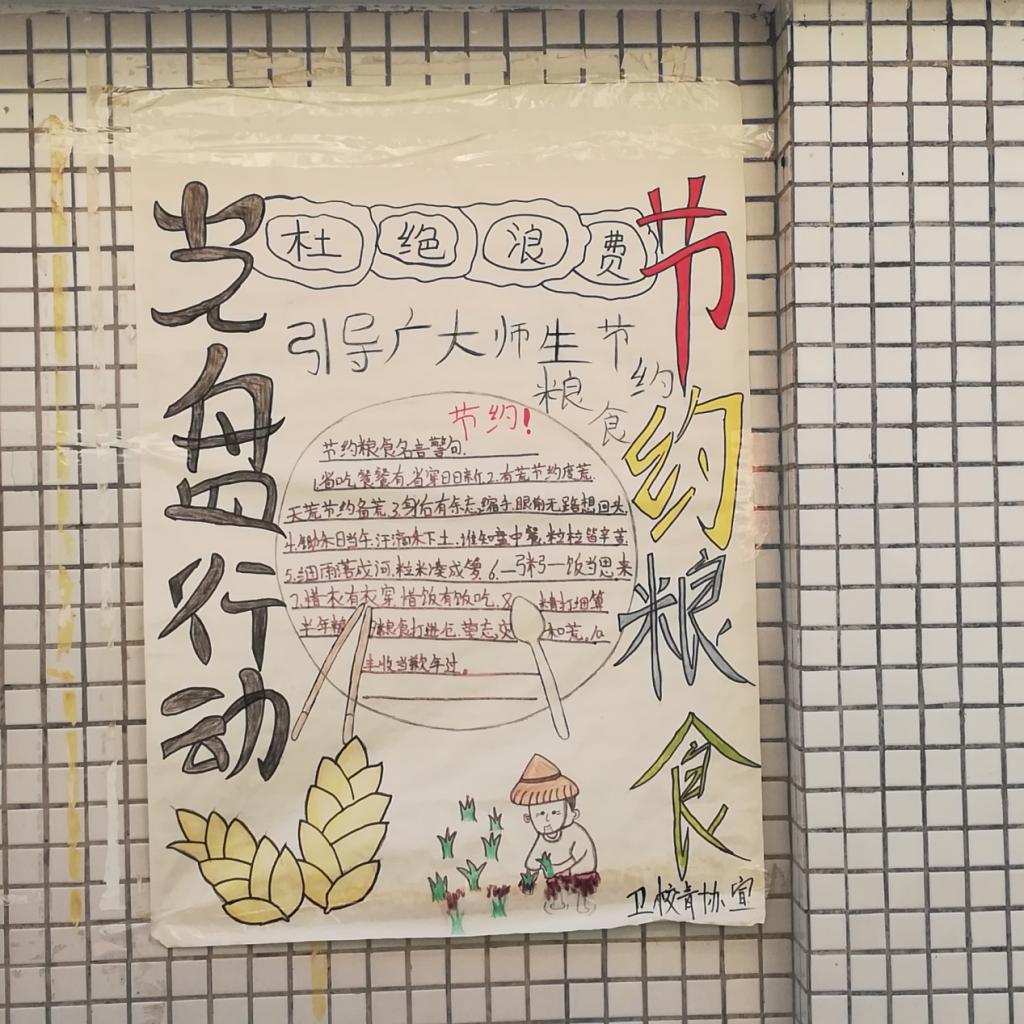 杜绝浪费
光盘行动
节约粮食
引导广大师生节约粮食
节约!
节约粮食名言警句
1.省吃餐餐有,省穿日日新.2.有荒节约度荒.
无荒节约备荒.3.身后有余忘缩手.眼前无路想回头
4.锄禾日当午.汗滴禾下土.谁知盘中餐,粒粒皆辛苦
5.细雨落成河,粒米凑成箩.6.一粥一饭当思来
7.惜衣有衣穿,惜饭有饭吃.8 精打细算
半年粮 粮食打进仓.莫忘 和荒,
丰收当歉年过。
卫校青协 宣